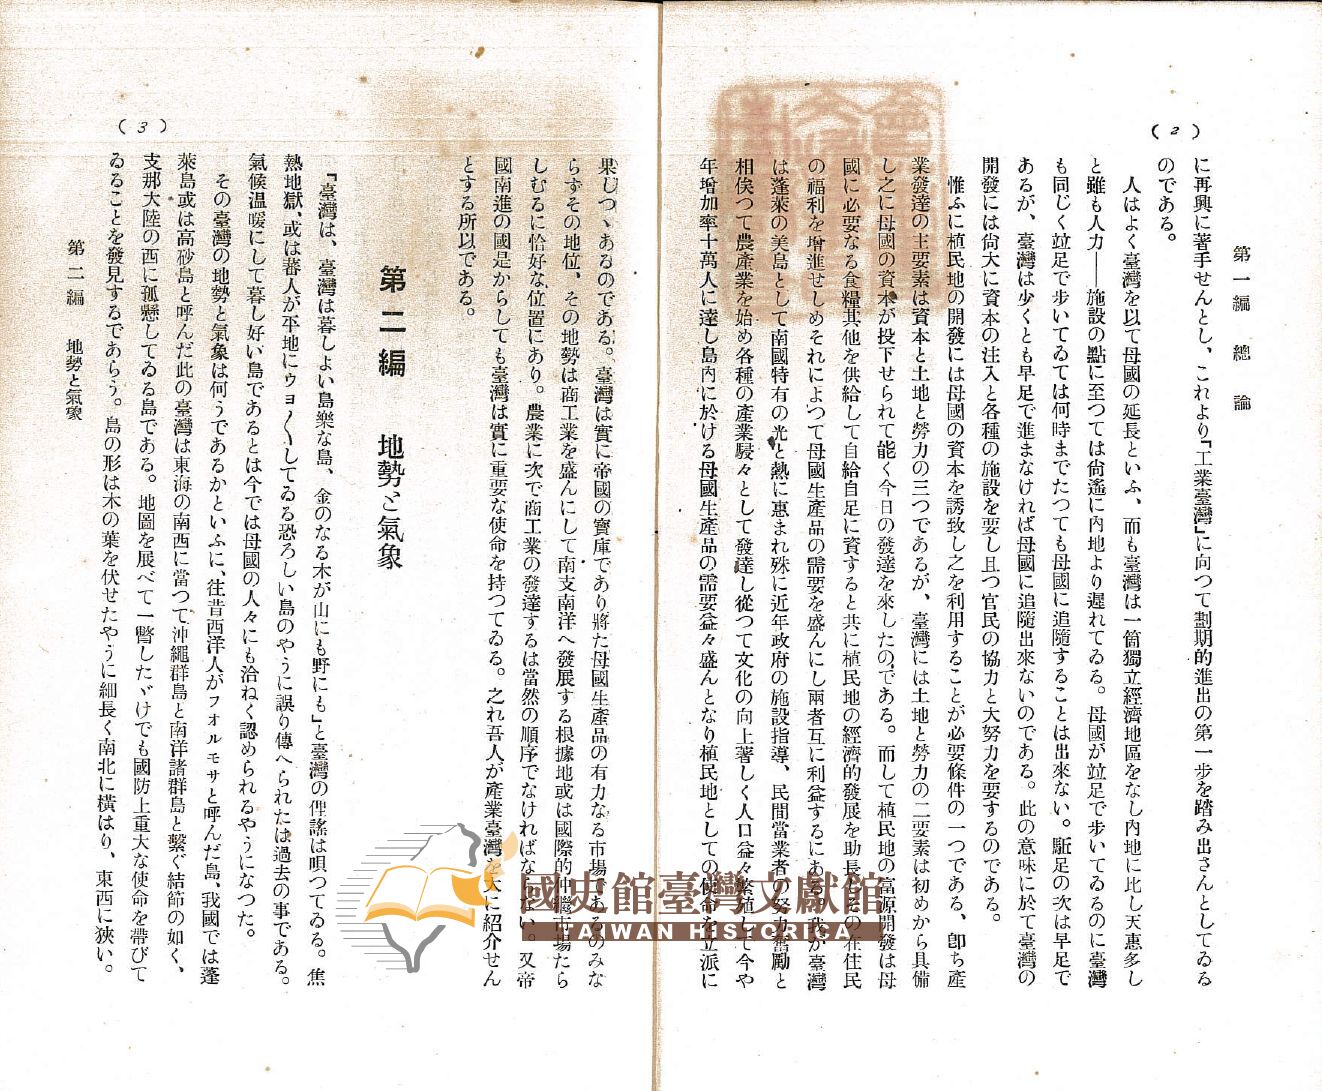 (2)
第一編 總論
に再興に著手せんとし、これより「工業臺灣」に向つて劃期的進出の第一步を踏み出さんとしてゐる
のである。
人はよく臺灣を以て母國の延長といふ、而も臺灣は一箇獨立經濟地區をなし內地に比し天惠多し
と雖も人力——施設の點に至つては尙遙に內地より遲れてゐる。母國が竝足で步いてゐるのに臺灣
も同じく竝足で步いてゐては何時までたつても母國に追隨することは出來ない。駈足の次は早足で
あるが、臺灣は少くとも早足で進まなければ母國に追隨出來ないのである。此の意味に於て臺灣の
開發には尙大に資本の注入と各種の施設を要し且つ官民の協力と大努力を要するのである。
惟ふに植民地の開發には母國の資本を誘致し之を利用することが必要條件の一つである、卽ち產
業發達の主要素は資本と土地と勞力の三つであるが、臺灣には土地と勞力の二要素は初めから具備
し之に母國の資本が投下せられて能く今日の發達を來したのである。而して植民地の富源開發は母
國に必要なる食糧其他を供給して自給自足に資すると共に植民地の經濟的發展を助長しその在住民
の福利を增進せしめそれによつて母國生產品の需要を盛んにし兩者互に利益するにある。我が臺灣
は蓬萊の美島として南國特有の光と熱に惠まれ殊に近年政府の施設指導、民間當業者の努力奮勵と
相俟つて農產業を始め各種の產業駸々として發達し從つて文化の向上著しく人口益々繁殖して今や
年增加率十萬人に達し島內に於ける母國生產品の需要益々盛んとなり植民地としての使命を立派に
(3)
果しつゝあるのである。臺灣は實に帝國の寶庫であり將た母國生產品の有力なる市場であるのみな
らずその地位、その地勢は商工業を盛んにして南支南洋へ發展する根據地或は國際的仲繼市場たら
しむるに恰好な位置にあり。農業に次で商工業の發達するは當然の順序でなければならない。又帝
國南進の國是からしても臺灣は實に重要な使命を持つてゐる。之れ吾人が產業臺灣を大に紹介せん
とする所以である。
第二編 地勢と氣象
「臺灣は、臺灣は暮しよい島樂な島、金のなる木が山にも野にも」と臺灣の俚謠は唄つてゐる。焦
熱地獄、或は蕃人が平地にウヨ〱してゐる恐ろしい島のやうに誤り傳へられたは過去の事である。
氣候溫暖にして暮し好い島であるとは今では母國の人々にも洽ねく認められるやうになつた。
その臺灣の地勢と氣象は何うであるかといふに、往昔西洋人がフオルモサと呼んだ島、我國では蓬
萊島或は高砂島と呼んだ此の臺灣は東海の南西に當つて沖繩群島と南洋諸群島と繫ぐ結節の如く、
支那大陸の西に孤懸してゐる島である。地圖を展べて一瞥したゞけでも國防上重大な使命を帶びて
ゐることを發見するであらう。島の形は木の葉を伏せたやうに細長く南北に橫はり、東西に狹い。
第二編 地勢と氣象
國史館臺灣文獻館
TAIWAN HISTORICA